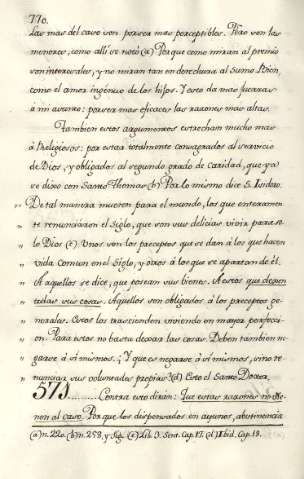 770.
Las mas del caso son. por ser mas perceptibles. Mas son las
menores, como allí se notó (a) Porque como miran al premio
son interesales, y no miran tan en derechura al Sumo Bien,
como el amor ingenuo de los hijos. Y esto da mas fuerzas
à mi asunto: por ser mas eficaces las razones mas altas.
Tambien estos argumentos estrechan mucho mas
à Religiosos: por estar totalmente consagrados al servicio
de Dios, y obligados al segundo grado de caridad, que ya
se dixo con Santo Thomas (b) Por lo mismo dice S. Isidoro:
De tal manera mueren para el mundo, los que enteramen-
te renunciaron el siglo, que son sus delicias vivir para so-
lo Dios (c) Unos son los preceptos que se dan à los que hacen
vida comun en el Siglo, y otros à los que se apartan de él.
A aquellos se dice, que posean sus bienes. A estos que dexen
todas sus cosas. Aquellos son obligados à los preceptos ge-
nerales. Estos los trascienden viviendo en mayor perfecci-
on. Para estos no basta dexar las cosas. Deben tambien ne-
garse à sí mismos. ¿Y que es negarse à sí mismos, sino re-
nunciar sus voluntades proprias? (d) Esto el Santo Doctor.
573......... Contra esto diràn: Que estas razones no vie-
nen al caso. Porque los dispensados en ayunos, abstinencia
(a) n. 220. (b) n. 258. y sig. (c) Lib. 3. Sent. Cap. 17. (d) Ibid. Cap. 18.